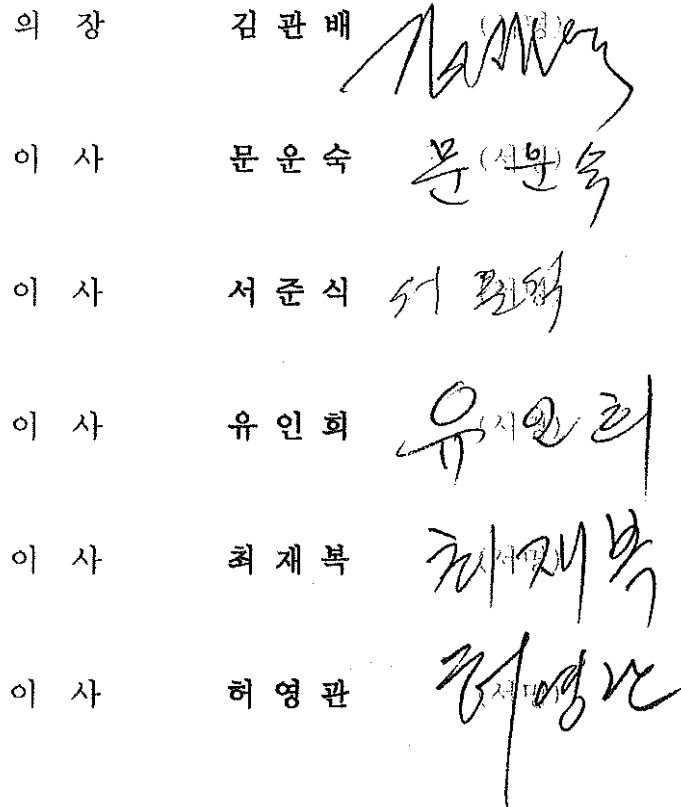 의 장 김 관 배 (서명)
이 사 문 운 숙 (서명) 문 운 숙
이 사 서 준 식 (서명) 서 준 식
이 사 유 인 희 (서명) 유 인 희
이 사 최 재 복 (서명) 최 재 복
이 사 허 영 관 (서명) 허 영 관